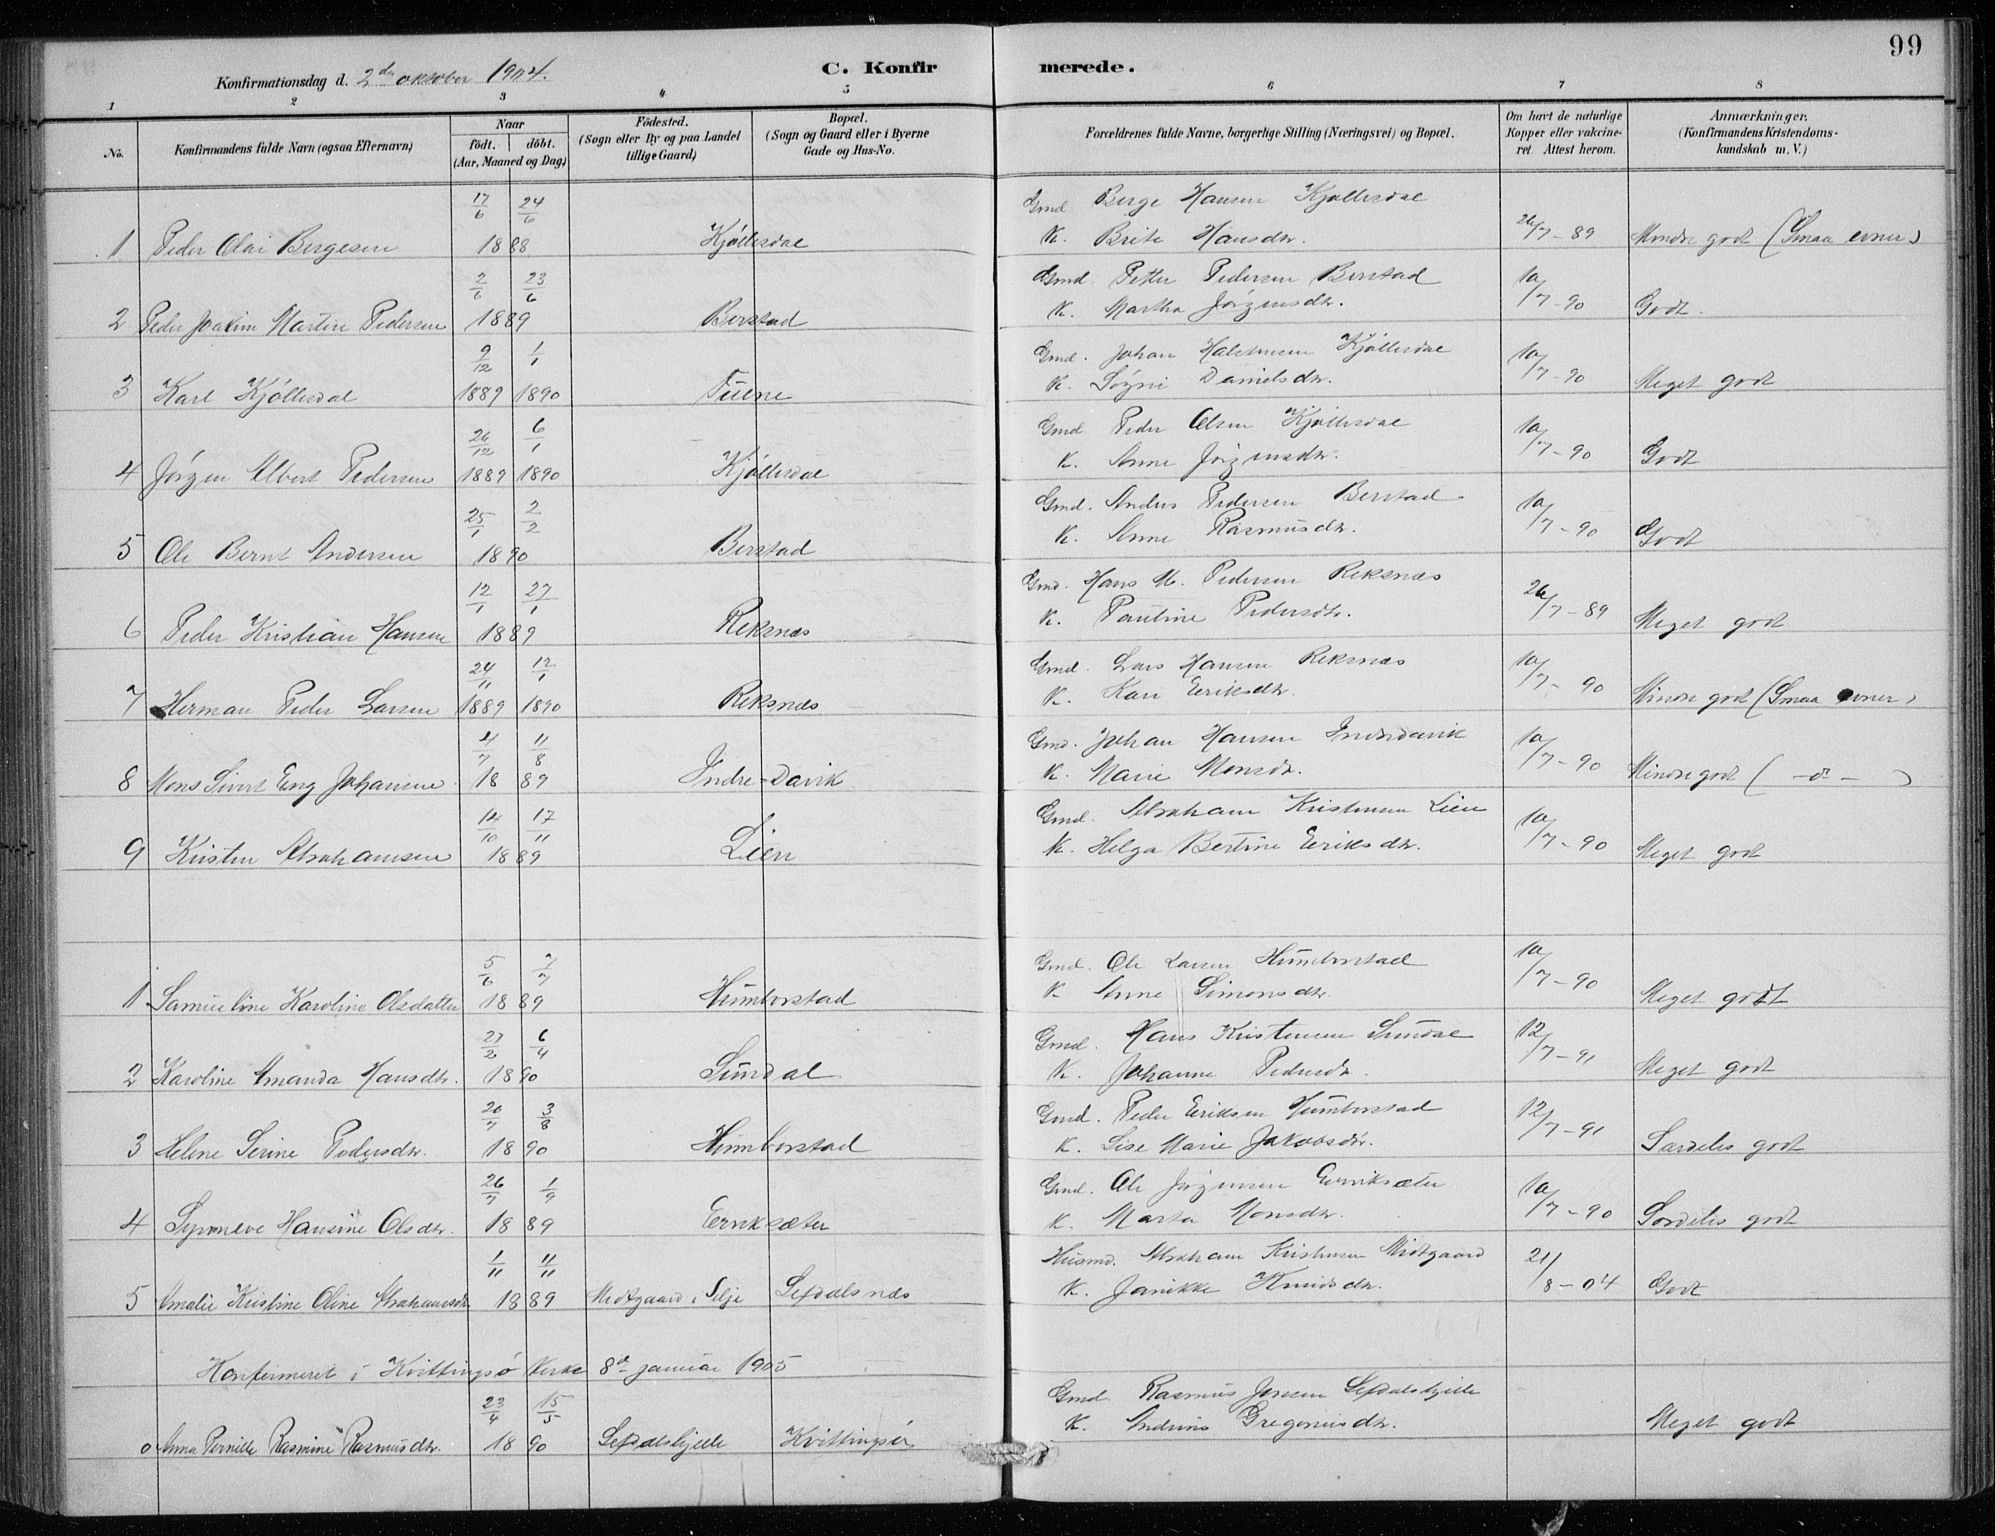 99
Konfirmationsdag d. 2den oktober 1904.
C. Konfirmerede.
1 2 3 4 5 6 7 8
No.
Konfirmandens fulde Navn (ogsaa Efternavn)
Naar
födt. döbt.
(Aar, Maaned og Dag)
Födested.
(Sogn eller By og paa Landet tillige Gaard)
Bopæl.
(Sogn og Gaard eller i Byerne Gade og Hus-No.
Forældrenes fulde Navne, borgerlige Stilling (Næringsvei) og Bopæl.
Om havt de naturlige Kopper eller vakcineret. Attest herom.
Anmærkninger.
(Konfirmandens Kristendomskundskab m. V.)
17/6 24/6 Gmd. Berge Hansen Kjøllesdal
1 Peder Olai Bergesen 1888 Kjøllesdal K. Brite Hansdtr. 26/7-89 Mindre godt (Smaa evner)
2/6 23/6 Gmd. Petter Pedersen Berstad
2 Peder Joakim Martin Pedersen 1889 Berstad K. Martha Jørgensdtr. 10/7-90 Godt.
9/12 1/1 Gmd. Johan Halstensen Kjøllesdal
3 Karl Kjøllesdal 1889 1890 Tuene K. Søgni Danielsdtr. 10/7-90 Meget godt
26/12 6/1 Gmd. Peder Olsen Kjøllesdal
4 Jørgen Albert Pedersen 1889 1890 Kjøllesdal K. Anne Jørgensdtr. 10/7-90 Godt
25/1 2/2 Gmd. Anders Pedersen Berstad
5 Ole Bernt Andersen 1890 Berstad K. Anne Rasmusdtr. 10/7-90 Godt
12/1 27/1 Gmd. Hans M. Pedersen Reksnæs
6 Peder Kristian Hansen 1889 Reksnæs K. Pauline Pedersdtr. 26/7-89 Meget godt
24/11 12/1 Gmd. Lars Hansen Reksnæs
7 Herman Peder Larsen 1889 1890 Reksnæs K. Kari Eriksdtr. 10/7-90 Mindre godt (Smaa evner)
4/7 11/8 Gmd. Johan Hansen Indredavik
8 Mons Sivert Eng Johansen 1889 Indre-Davik K. Marie Monsdtr. 10/7-90 Mindre godt ( -d- )
14/10 17/11 Gmd. Abraham Kristensen Lien
9 Kristen Abrahamsen 1889 Lien K. Helga Bertine Eriksdtr. 10/7-90 Meget godt
5/6 7/7 Gmd. Ole Larsen Humborstad
1 Samueline Karoline Olsdatter 1889 Humborstad K. Anne Simonsdtr. 10/7-90 Meget godt
27/2 6/4 Gmd. Hans Kristensen Sundal
2 Karoline Amanda Hansdtr. 1890 Sundal K. Johanne Pedersdtr. 12/7-91 Meget godt
20/7 3/8 Gmd. Peder Eriksen Humborstad
3 Helene Serine Pedersdtr. 1890 Humborstad K. Lise Marie Jakobsdtr. 12/7-91 Særdeles godt
26/7 1/9 Gmd. Ole Jørgensen Erviksæter
4 Synneve Hansine Olsdtr. 1889 Erviksæter K. Marta Monsdtr. 10/7-90 Særdeles godt
1/11 11/11 Husmd. Abraham Kristensen Midtgaard
5 Amalie Kristine Oline Abrahamsdtr. 1889 Midtgaard i Selje Lefdalsnæs K. Janikke Knudsdtr. 21/8-04 Godt
Konfirmeret i Kvittingsø Kirke 8de januar 1905
23/4 15/5 Gmd. Rasmus Jensen Lefdalshjelle
0 Anna Pernille Rasmine Rasmusdtr. 1890 Lefdalshjelle Kvittingsø K. Andrine Gregoriusdtr. Meget godt